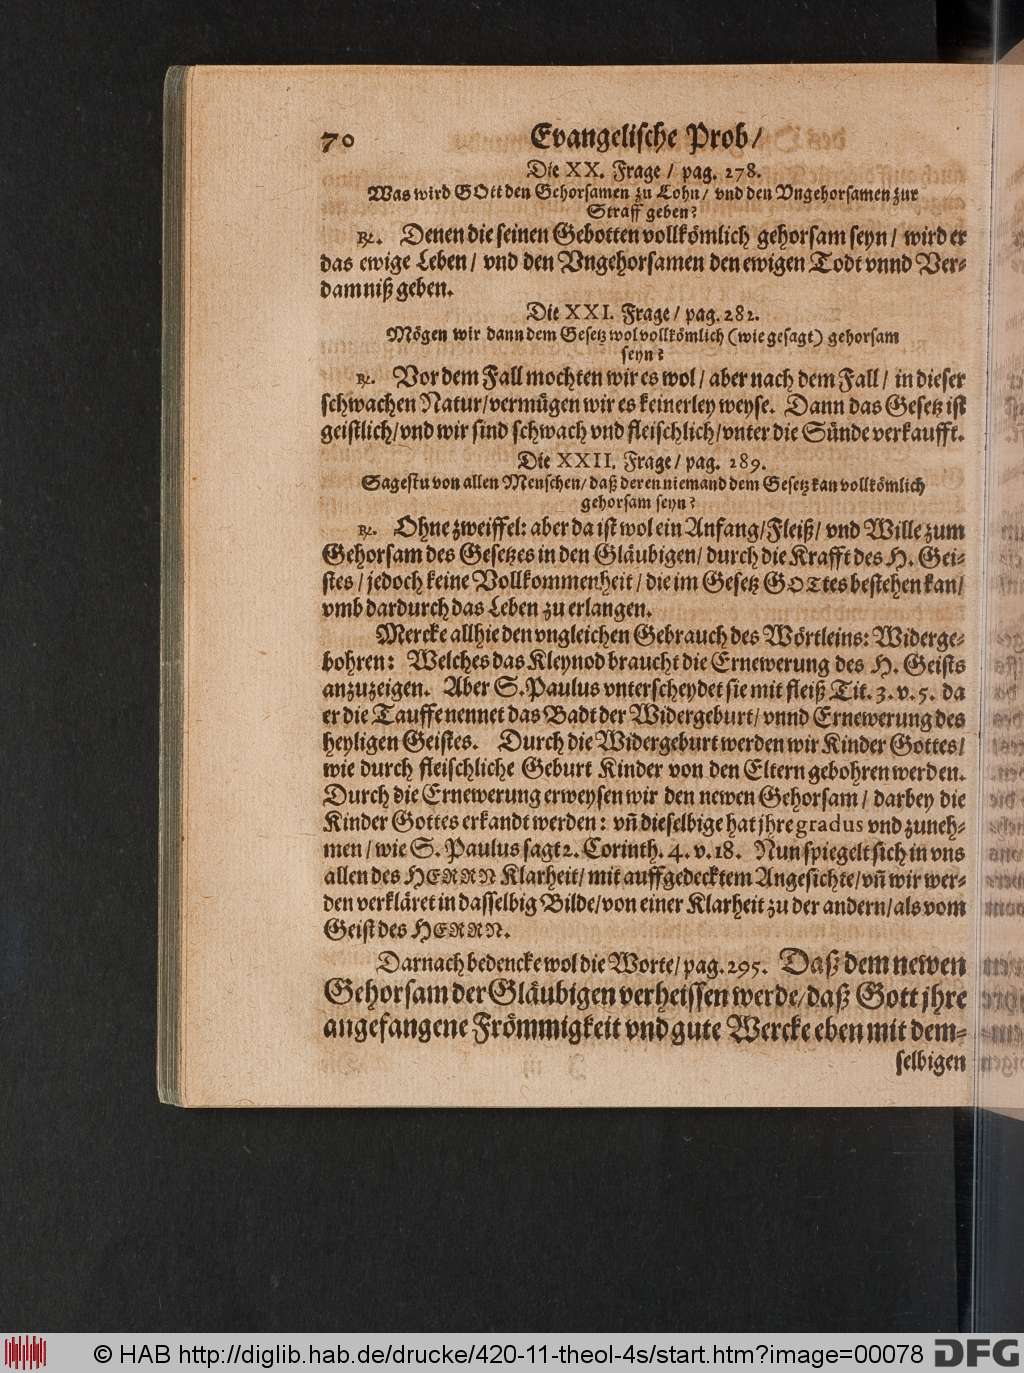 70 Evangelische Prob/
Die XX. Frage / pag. 278.
Was wird GOtt den Gehorsamen zu Lohn/ vnd den Vngehorsamen zur
Straff geben?
℟. Denen die seinen Gebotten vollkömlich gehorsam seyn/ wird er
das ewige Leben/ vnd den Vngehorsamen den ewigen Todt vnnd Ver-
damniß geben.
Die XXI. Frage/ pag. 282.
Mögen wir dann dem Gesetz wol vollkömlich (wie gesagt) gehorsam
seyn?
℟. Vor dem Fall mochten wir es wol/ aber nach dem Fall/ in dieser
schwachen Natur/ vermügen wir es keinerley weyse. Dann das Gesetz ist
geistlich/ vnd wir sind schwach vnd fleischlich/ vnter die Sünde verkaufft.
Die XXII. Frage/ pag. 289.
Sagestu von allen Menschen/ daß deren niemand dem Gesetz kan vollkömlich
gehorsam seyn?
℟. Ohne zweiffel: aber da ist wol ein Anfang/ Fleiß/ vnd Wille zum
Gehorsam des Gesetzes in den Gläubigen/ durch die Krafft des H. Gei-
stes/ jedoch keine Vollkommenheit/ die im Gesetz GOTtes bestehen kan/
vmb dardurch das Leben zu erlangen.
Mercke allhie den vngleichen Gebrauch des Wörtleins: Widerge-
bohren: Welches das Kleynod braucht die Ernewerung des H. Geists
anzuzeigen. Aber S. Paulus vnterscheydet sie mit fleiß Tit. 3. v. 5. da
er die Tauffe nennet das Badt der Widergeburt/ vnnd Ernewerung des
heyligen Geistes. Durch die Widergeburt werden wir Kinder Gottes/
wie durch fleischliche Geburt Kinder von den Eltern gebohren werden.
Durch die Ernewerung erweysen wir den newen Gehorsam/ darbey die
Kinder Gottes erkandt werden: vñ dieselbige hat jhre gradus vnd zuneh-
men/ wie S. Paulus sagt 2. Corinth. 4. v. 18. Nun spiegelt sich in vns
allen des HERRN Klarheit/ mit auffgedecktem Angesichte/ vñ wir wer-
den verkläret in dasselbig Bilde/ von einer Klarheit zu der andern/ als vom
Geist des HERRN.
Darnach bedencke wol die Worte/ pag. 295. Daß dem newen
Gehorsam der Gläubigen verheissen werde/ daß Gott jhre
angefangene Frömmigkeit vnd gute Wercke eben mit dem-
selbigen
© HAB http://diglib.hab.de/drucke/420-11-theol-4s/start.htm?image=00078
DFG